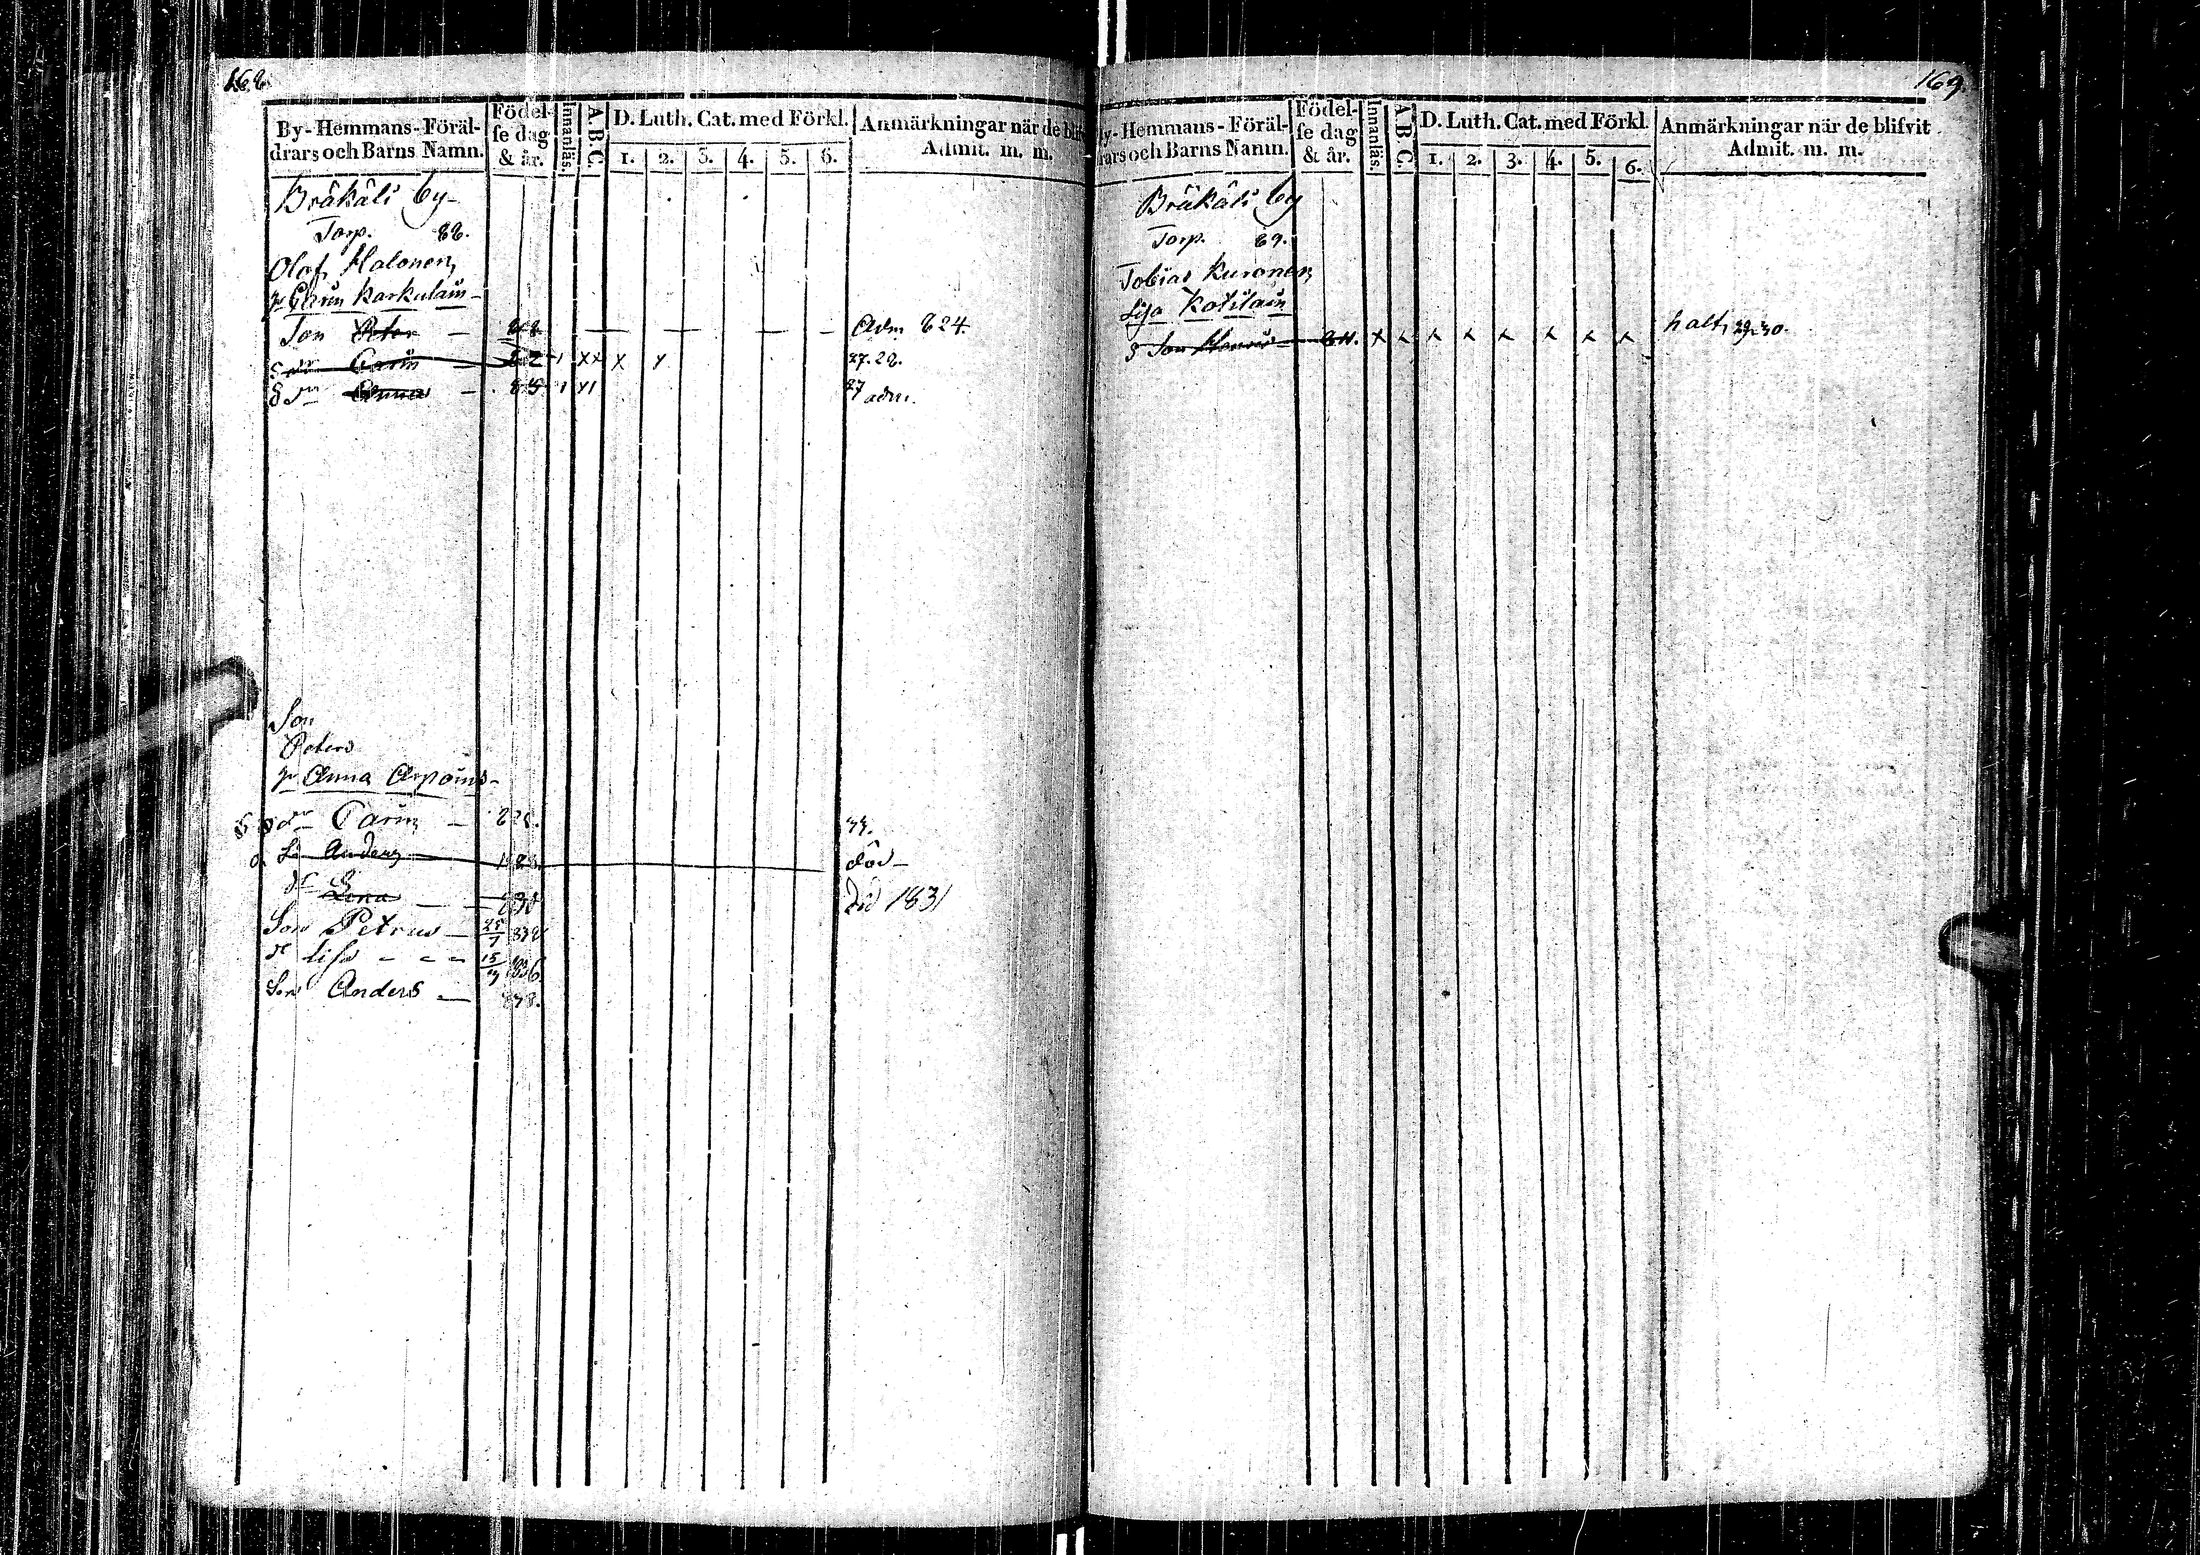 168
By-Hemmans-Föräl-
drars och Barns Namn.
Födel-
se dag
& år.
Innanläs.
A.B.C.
D. Luth. Cat. med Förkl.
1. 2. 3. 4. 5. 6.
Anmärkningar när de blif
Admit. m. m.
Bräkäli by
Torp. 88.
Olof Halonen
Carin Karkulain
Son Peter — Adm 824
Carin x x x x 27.28.
Anna 27 adm.
Son
Peters
Anna
Carin 33.
Anders död
Lena Död 1831
Son Petrus — 25/7 832
Lisa 15/ 1836
Son Anders — 838.
169.
By-Hemmans-Föräl-
drars och Barns Namn.
Födel-
se dag
& år.
Innanläs.
A B C.
D. Luth. Cat. med Förkl.
1. 2. 3. 4. 5. 6.
Anmärkningar när de blifvit
Admit. m. m.
Bräkäli by
Torp. 89.
Tobias Kuronen
Lisa Kotilain
Son x x x x x x x x halt, 29-30.